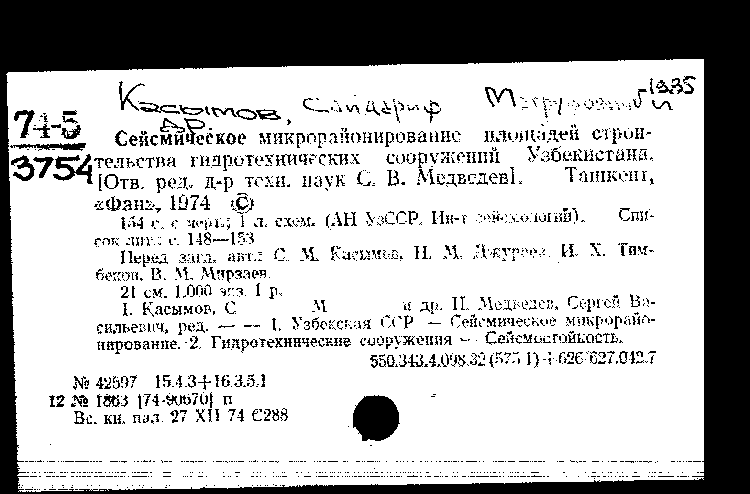 Касымов, Саидариф М 1935
др.
74-5
3754
Сейсмическое микрорайонирование площадей строи-
тельства гидротехнических сооружений Узбекистана.
[Отв. ред. д-р техн. наук С. В. Медведев]. Ташкент,
«Фан», 1974 ©
154 с. с черт.; 1 л. схем. (АН УзССР. Ин-т сейсмологии). Спи-
сок лит.: с. 148—153
Перед загл. авт.: С. М. Касымов, Н. М. Джураев, И. Х. Тим-
беков, В. М. Мирзаев.
21 см. 1.000 экз. 1 р.
I. Касымов, С М и др. II. Медведев, Сергей Ва-
сильевич, ред. — — 1. Узбекская ССР — Сейсмическое микрорайо-
нирование. 2. Гидротехнические сооружения — Сейсмостойкость.
550.343.4.098.32(575.1)+626/627.042.7
№ 42597 15.4.3+16.3.5.1
12 № 1863 [74-90670] п
Вс. кн. пал. 27 XII 74 С288